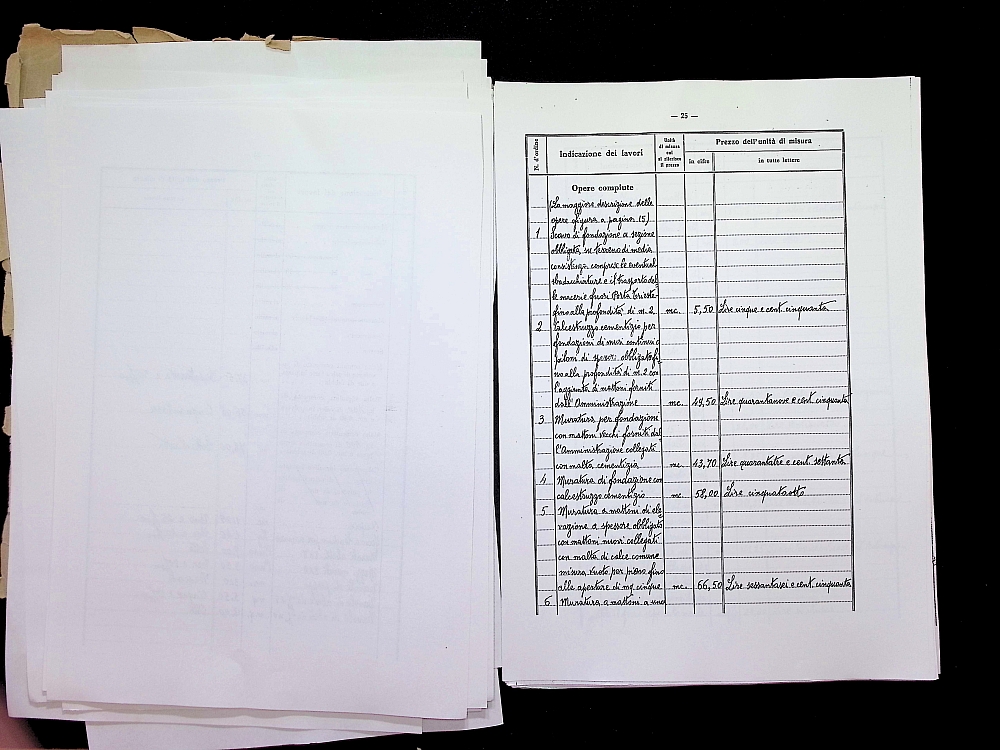 — 25 —
N. d'ordine
Indicazione dei lavori
Unità
di misura
cui
si riferisce
il prezzo
Prezzo dell'unità di misura
in cifre
in tutte lettere
Opere compiute
(La maggiore descrizione delle
opere figura a pagina (5)
1 Scavo di fondazione a sezione
obbligata su terreno di media
consistenza compreso le eventuali
sbadacchiature e il trasporto del
le macerie fuori Porta Trieste
fino alla profondità di m. 2 mc. 5,50 Lire cinque e cent. cinquanta
2 Calcestruzzo cementizio per
fondazioni di muri continui o
piloni di spessore obbligato fi
no alla profondità di m. 2 con
l'aggiunta di mattoni forniti
dall'Amministrazione mc. 49,50 Lire quarantanove e cent. cinquanta
3 Muratura per fondazione
con mattoni vecchi forniti dal
l'Amministrazione collegati
con malta cementizia mc. 43,70 Lire quarantatre e cent. settanta
4 Muratura di fondazione con
calcestruzzo cementizio mc. 58,00 Lire cinquantaotto
5 Muratura a mattoni di ele
vazione a spessore obbligato
con mattoni nuovi collegati
con malta di calce comune
misura vuoto per pieno fino
alle aperture di mq. cinque mc. 66,50 Lire sessantasei e cent. cinquanta
6 Muratura a mattoni a una